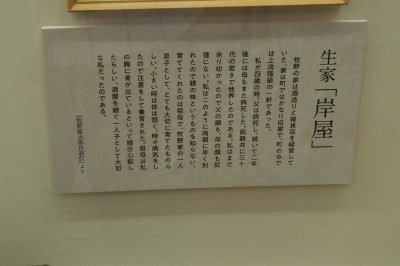 生家「岸屋」
牧野の家は酒造りと雑貨店を経営して
いた。家は町ではかなり旧家で、町の中で
は上流階級の一軒であった。
私が四歳の時、父は病死し、続いて二年
後には母もまた病死した。両親共に三十
代の若さで他界したのである。私はまだ
余り幼かったので父の顔も、母の顔も記
憶にない。私はこのように両親に早く別
れたので親の味というものを知らない。
育ててくれたのは祖母で、牧野家の一人
息子として、とても大切に育てたものら
しい。小さい時は体は弱く、時々病気をし
たので注意をして養育された。祖母は私
の胸に骨が出ているといって随分心配し
たらしい。酒屋を継ぐ一人子として大切
な私だったのである。
『牧野富太郎自叙伝』より